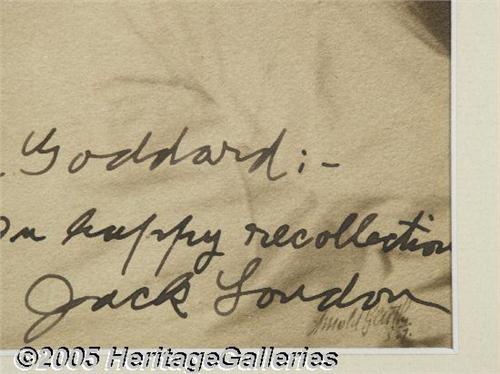 . Goddard:-
In happy recollection
Jack London
Arnold Genthe
©2005 HeritageGalleries